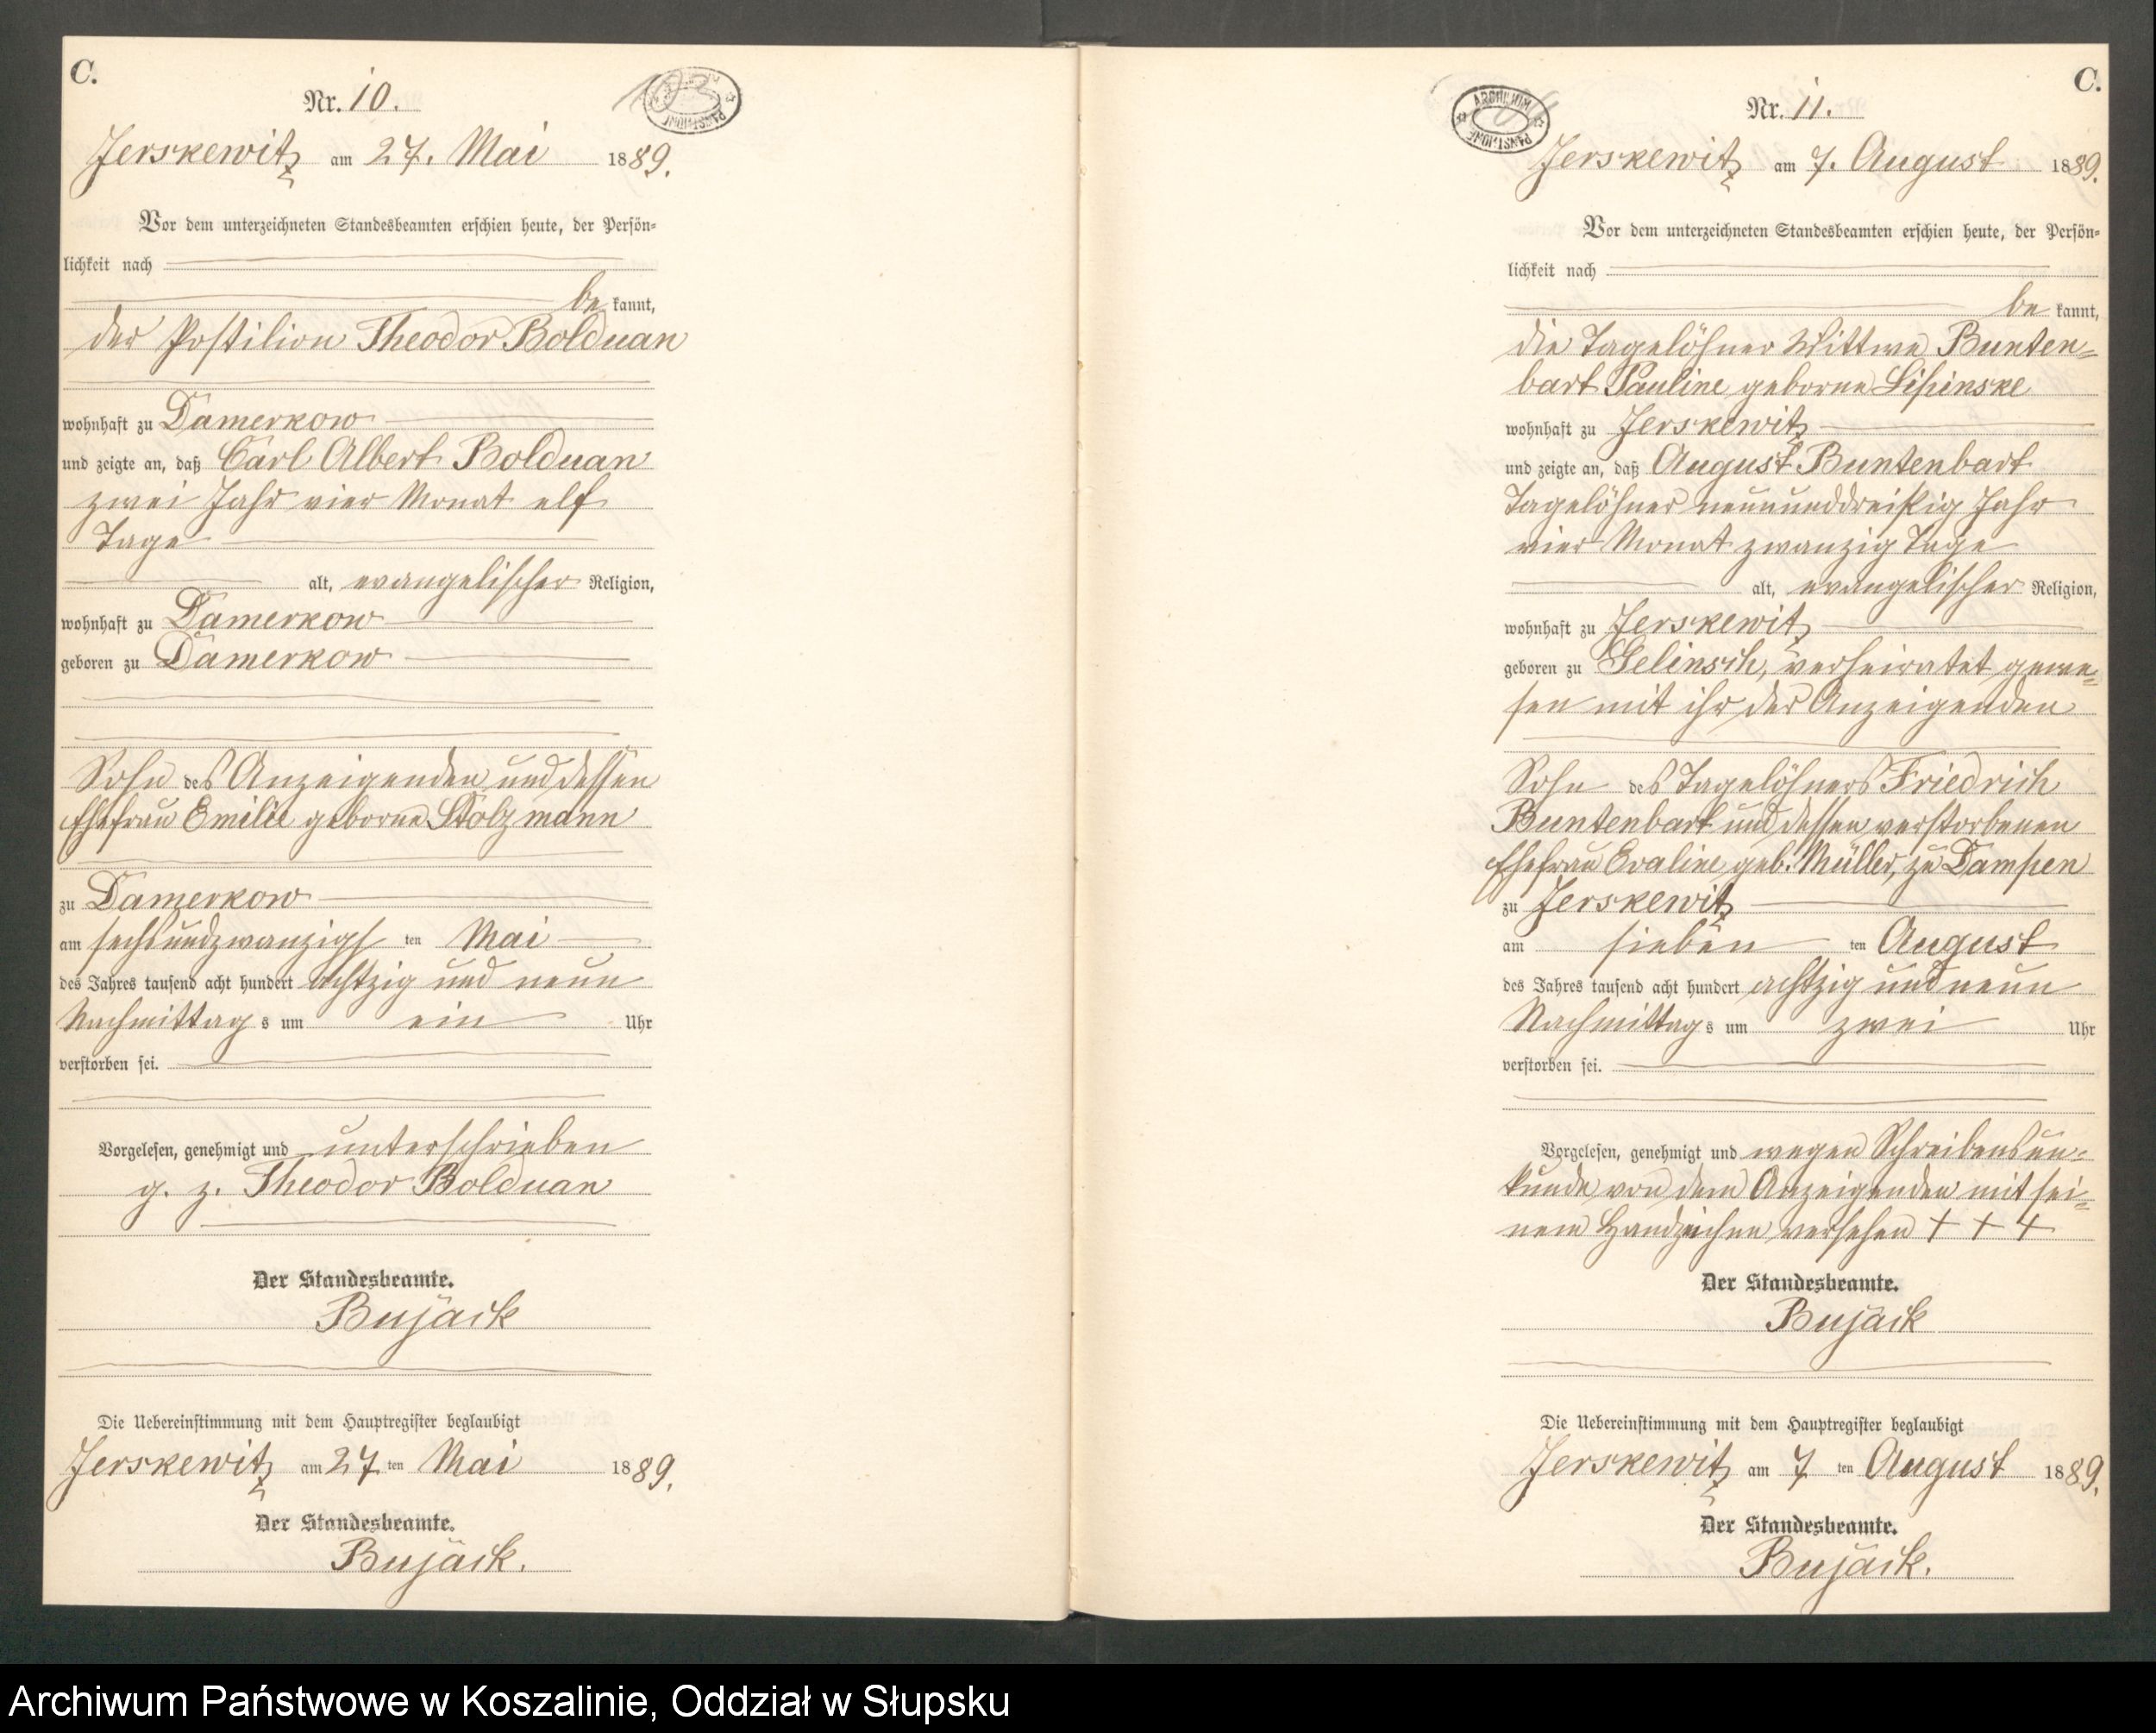 C.
Nr. 10.
Jerskewitz am 27. Mai 1889.
Vor dem unterzeichneten Standesbeamten erschien heute, der Persön-
lichkeit nach
be kannt,
der Postilion Theodor Bolduan
wohnhaft zu Damerkow
und zeigte an, daß Carl Albert Bolduan
zwei Jahr vier Monat elf
Tage
alt, evangelischer Religion,
wohnhaft zu Damerkow
geboren zu Damerkow
Sohn des Anzeigenden und dessen
Ehefrau Emilie geborne Stolzmann
zu Damerkow
am sechsundzwanzigs ten Mai
des Jahres tausend acht hundert achtzig und neun
Nachmittag s um ein Uhr
verstorben sei.
Vorgelesen, genehmigt und unterschrieben
g. z. Theodor Bolduan
Der Standesbeamte.
Bujack
Die Uebereinstimmung mit dem Hauptregister beglaubigt
Jerskewitz am 27 ten Mai 1889.
Der Standesbeamte.
Bujack.
ARCHIWUM PAŃSTWOWE
C.
Nr. 11.
Jerskewitz am 7. August 1889.
Vor dem unterzeichneten Standesbeamten erschien heute, der Persön-
lichkeit nach
be kannt,
die Tagelöhner Wittwe Bunten-
bart Pauline geborne Lipinske
wohnhaft zu Jerskewitz
und zeigte an, daß August Buntenbart
Tagelöhner neununddreißig Jahr
vier Monat zwanzig Tage
alt, evangelischer Religion,
wohnhaft zu Jerskewitz
geboren zu Jelinsch, verheiratet gewe-
sen mit ihr der Anzeigenden
Sohn des Tagelöhners Friedrich
Buntenbart und dessen verstorbenen
Ehefrau Evaline geb. Müller, zu Dampen
zu Jerskewitz
am sieben ten August
des Jahres tausend acht hundert achtzig und neun
Nachmittag s um zwei Uhr
verstorben sei.
Vorgelesen, genehmigt und wegen Schreibensun-
kunde von dem Anzeigenden mit sei-
nem Handzeichen versehen + + +
Der Standesbeamte.
Bujack
Die Uebereinstimmung mit dem Hauptregister beglaubigt
Jerskewitz am 7 ten August 1889.
Der Standesbeamte.
Bujack.
Archiwum Państwowe w Koszalinie, Oddział w Słupsku